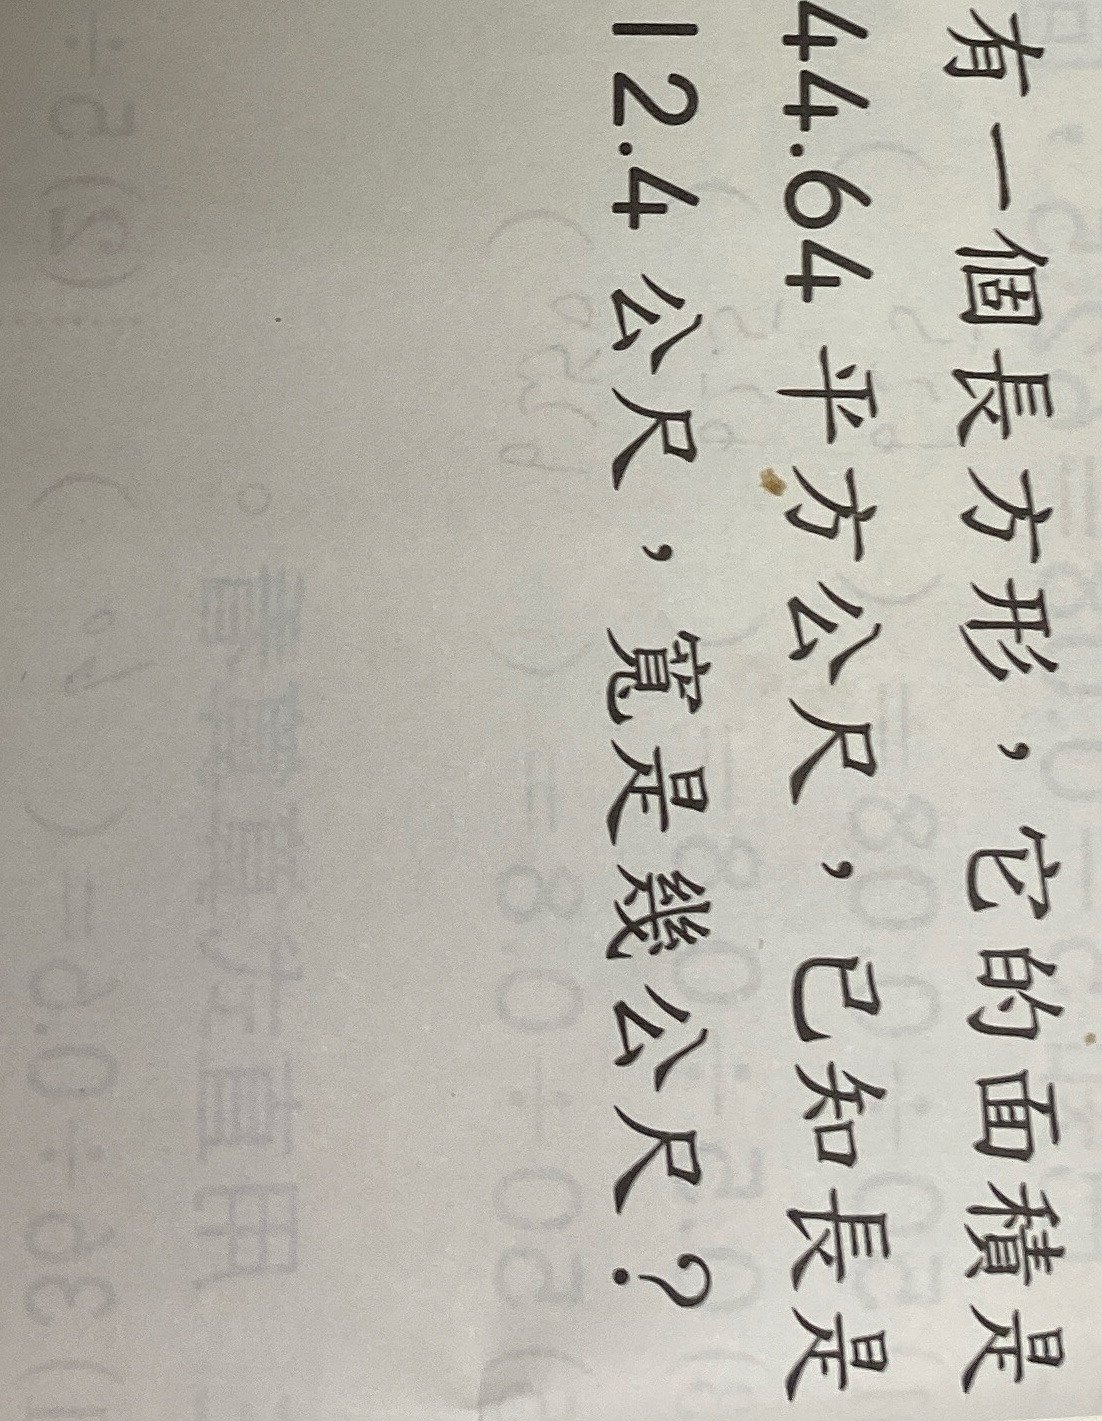 有一個長方形，它的面積是
44.64平方公尺，已知長是
12.4公尺，寬是幾公尺？